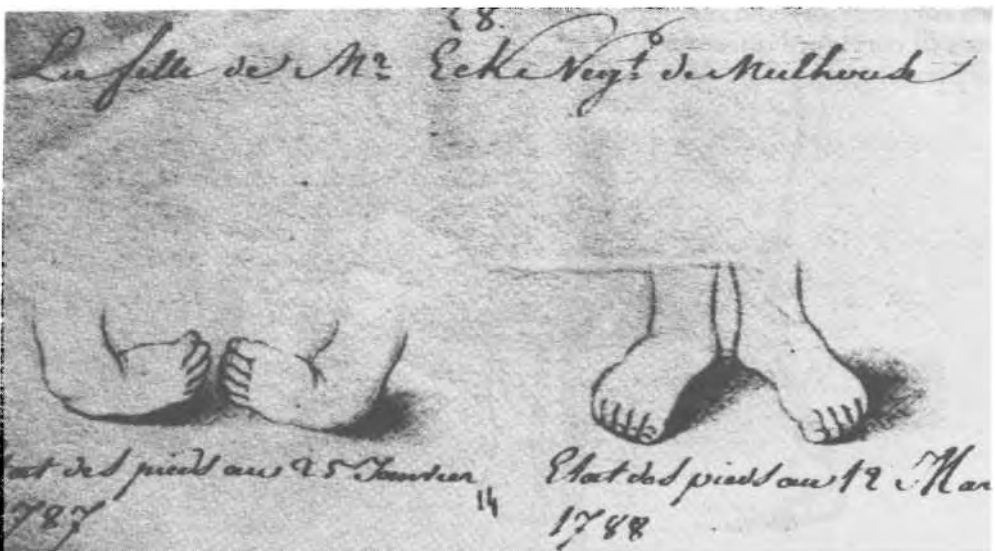 28.
La fille de Mr. Eck Negt. de Mulhouse
tat des pieds au 25 Janvier
787
14
Etat des pieds au 12 Mar
1788